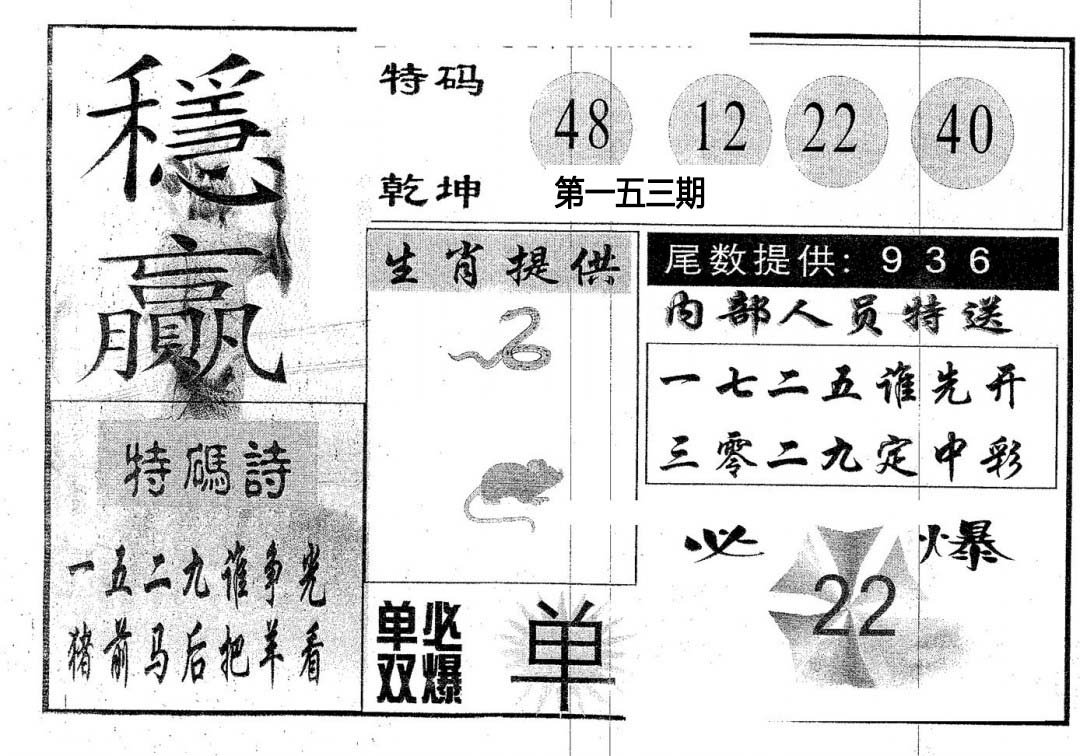 穩贏
特码
48 12 22 40
乾坤
第一五三期
生肖提供
尾数提供: 9 3 6
内部人员特送
一七二五谁先开
三零二九定中彩
特碼詩
一五二九谁争光
猪前马后把羊看
单双必爆
单
必爆
22